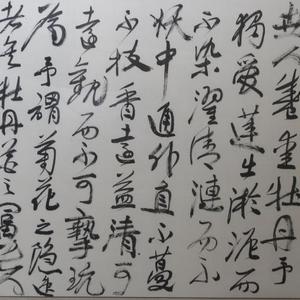 世人愛牡丹予
獨愛蓮出淤泥而
不染濯清漣而不
妖中通外直不蔓
不枝香遠益清可
遠觀而不可玩
焉予謂菊花之隱逸
者矣牡丹花之富